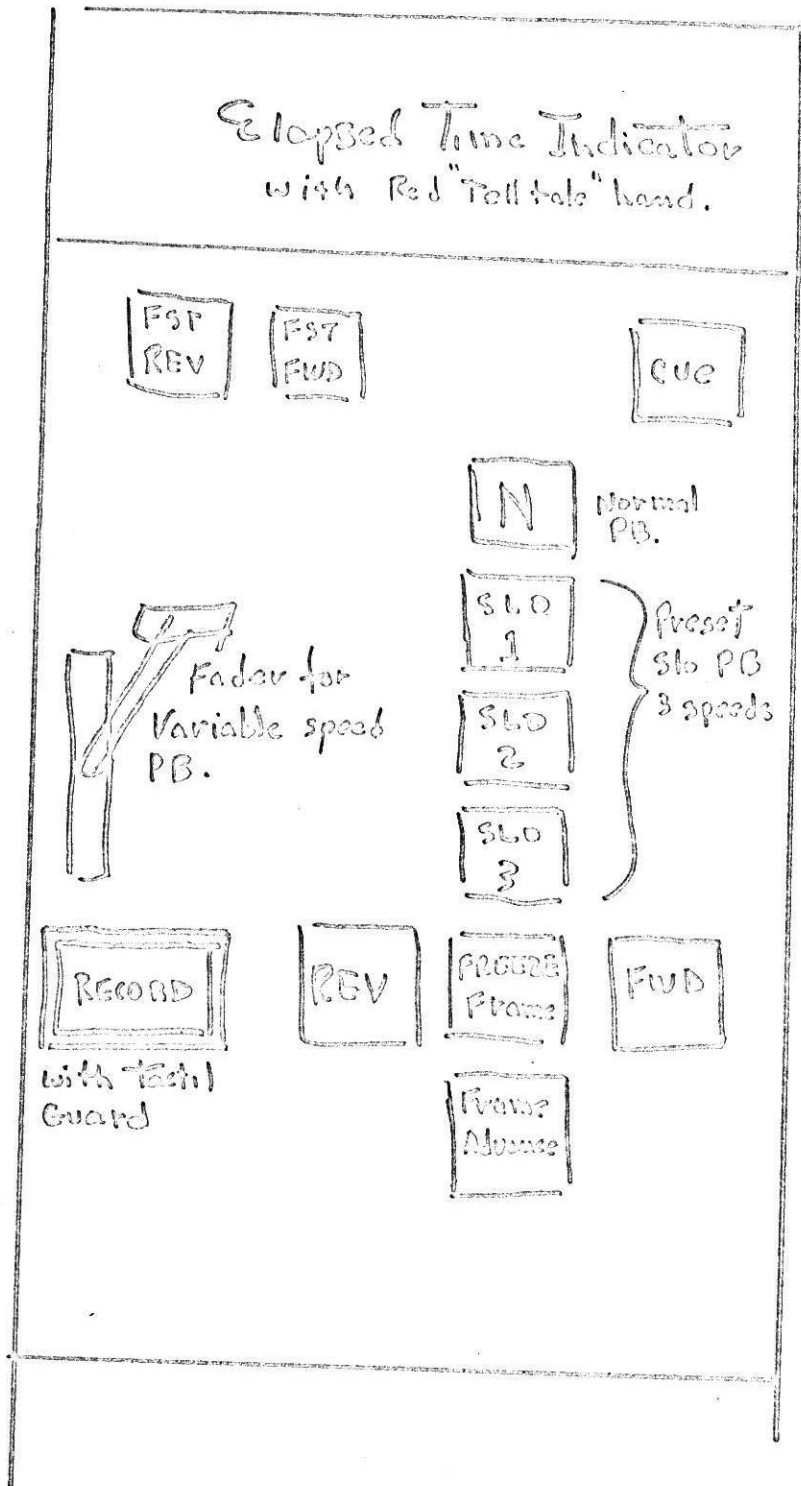 Elapsed Time Indicator
with Red "Telltale" hand.
FST
REV
FST
FWD
CUE
N
Normal
PB.
SLO
1
SLO
2
SLO
3
Preset
Slo PB
3 speeds
Fader for
Variable speed
PB.
RECORD
with Tactil
Guard
REV
FREEZE
Frame
FWD
Frame
Advance